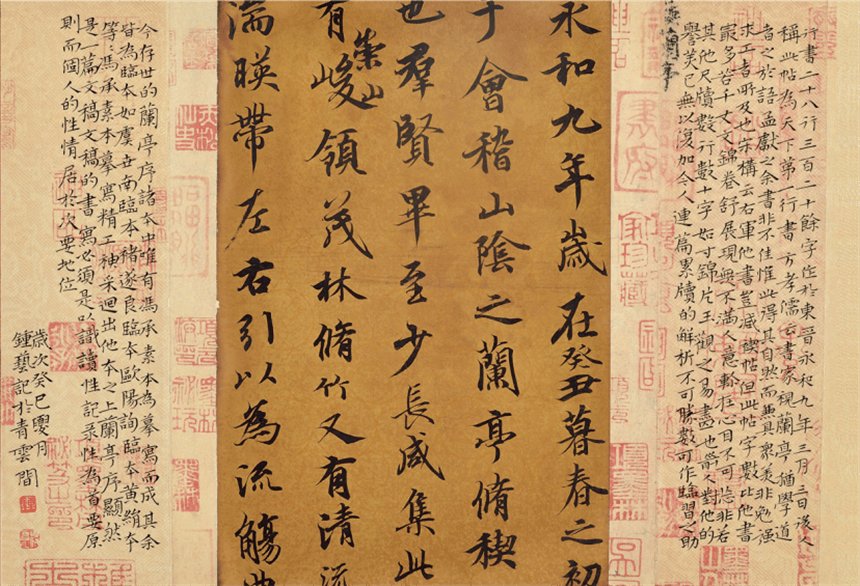 行書二十八行三百二十餘字作於東晉永和九年三月三日後人
稱此帖為天下第一行書方孝儒云書家視蘭亭猶學道
者之於語孟獻之余書非不佳惟此得其自然而無具眾美非勉強
求工者所及也宋構云右軍他書豈減禊帖但此帖字數比他書
最多若千丈文錦卷舒展現無不滿人意軫在心目不可忘非若
其他尺牘數行數十字如寸錦片玉觀之易盡也前人對他的
譽美已無以復加令人連篇累牘的解析不可勝數可作臨習之助
蘭亭序
永和九年歲在癸丑暮春之初
于會稽山陰之蘭亭脩稧
也羣賢畢至少長咸集此
有崇山峻領茂林脩竹又有清流
湍暎帶左右引以為流觴曲
今存世的蘭亭序諸本中唯有馮承素本為摹寫而成其余
皆為臨本如虞世南臨本褚遂良臨本歐陽詢臨本黃絹本
等馮承素本摹寫精工神采迥出他本之上蘭亭序顯然
是一篇文稿文稿的書寫必須是以識讀性記录性為首要原
則而個人的性情居於次要地位
歲次癸巳月
鍾藝記於青雲間